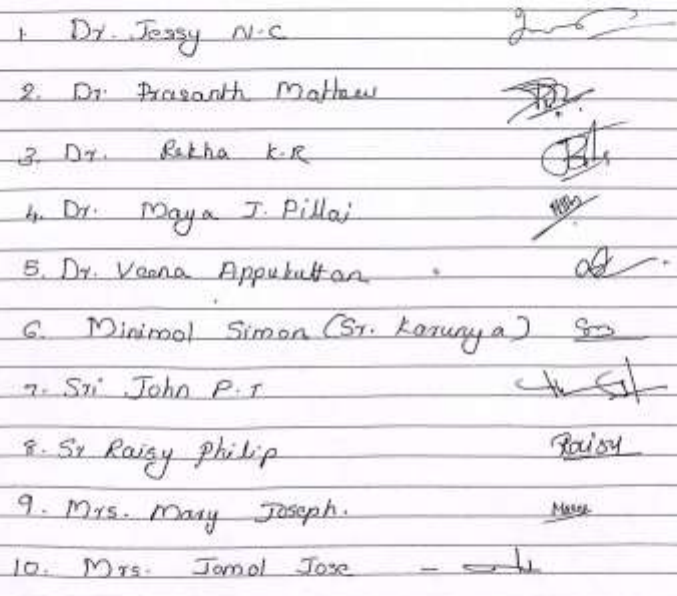 1. Dr. Jessy N.C
2. Dr. Prasanth Mathew
3. Dr. Rekha K.R
4. Dr. Maya J. Pillai
5. Dr. Veena Appukuttan
6. Minimol Simon (Sr. Karunya)
7. Sri John P.T
8. Sr Raisy Philip Raisy
9. Mrs. Mary Joseph.
10. Mrs. Jomol Jose -